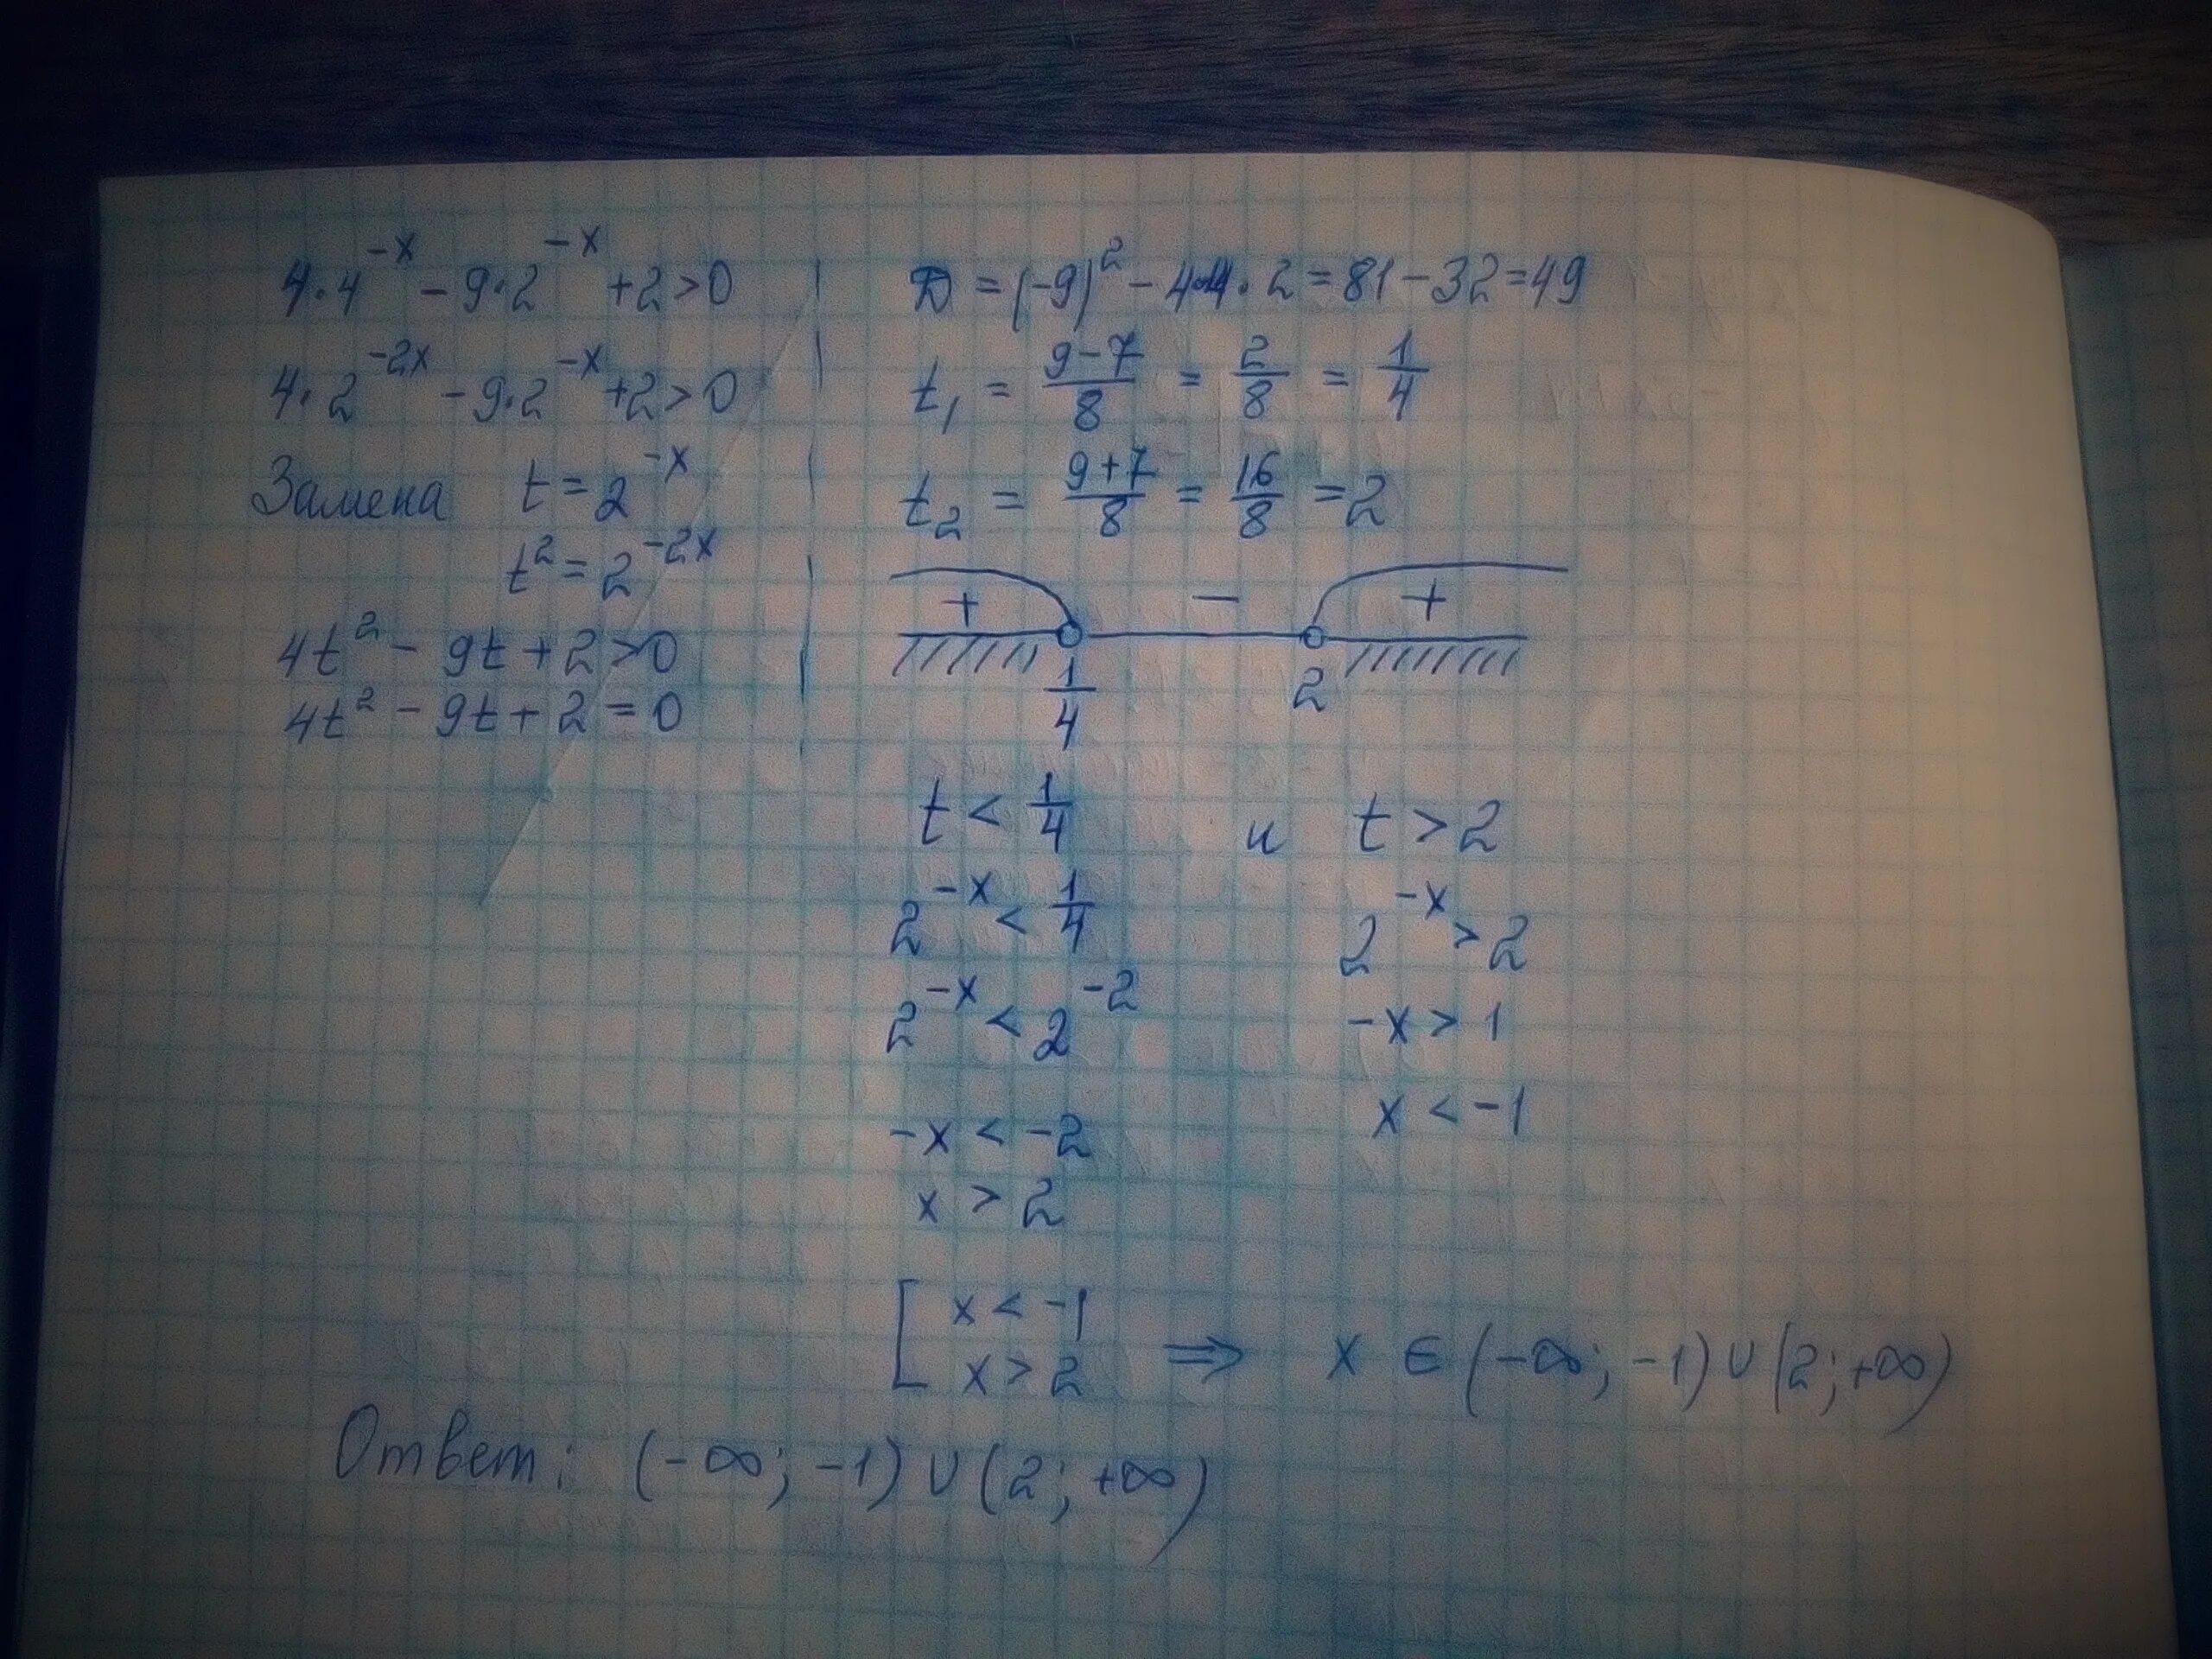 4·4^{-x} - 9·2^{-x} + 2 > 0
4·2^{-2x} - 9·2^{-x} + 2 > 0
Замена t = 2^{-x}
t² = 2^{-2x}
4t² - 9t + 2 > 0
4t² - 9t + 2 = 0
D = (-9)² - 4·4·2 = 81 - 32 = 49
t₁ = \frac{9-7}{8} = \frac{2}{8} = \frac{1}{4}
t₂ = \frac{9+7}{8} = \frac{16}{8} = 2
+ - +
\frac{1}{4} 2
t < \frac{1}{4} и t > 2
2^{-x} < \frac{1}{4} 2^{-x} > 2
2^{-x} < 2^{-2} -x > 1
-x < -2 x < -1
x > 2
[ x < -1
x > 2 ⇒ x ∈ (-∞; -1) ∪ (2; +∞)
Ответ: (-∞; -1) ∪ (2; +∞)